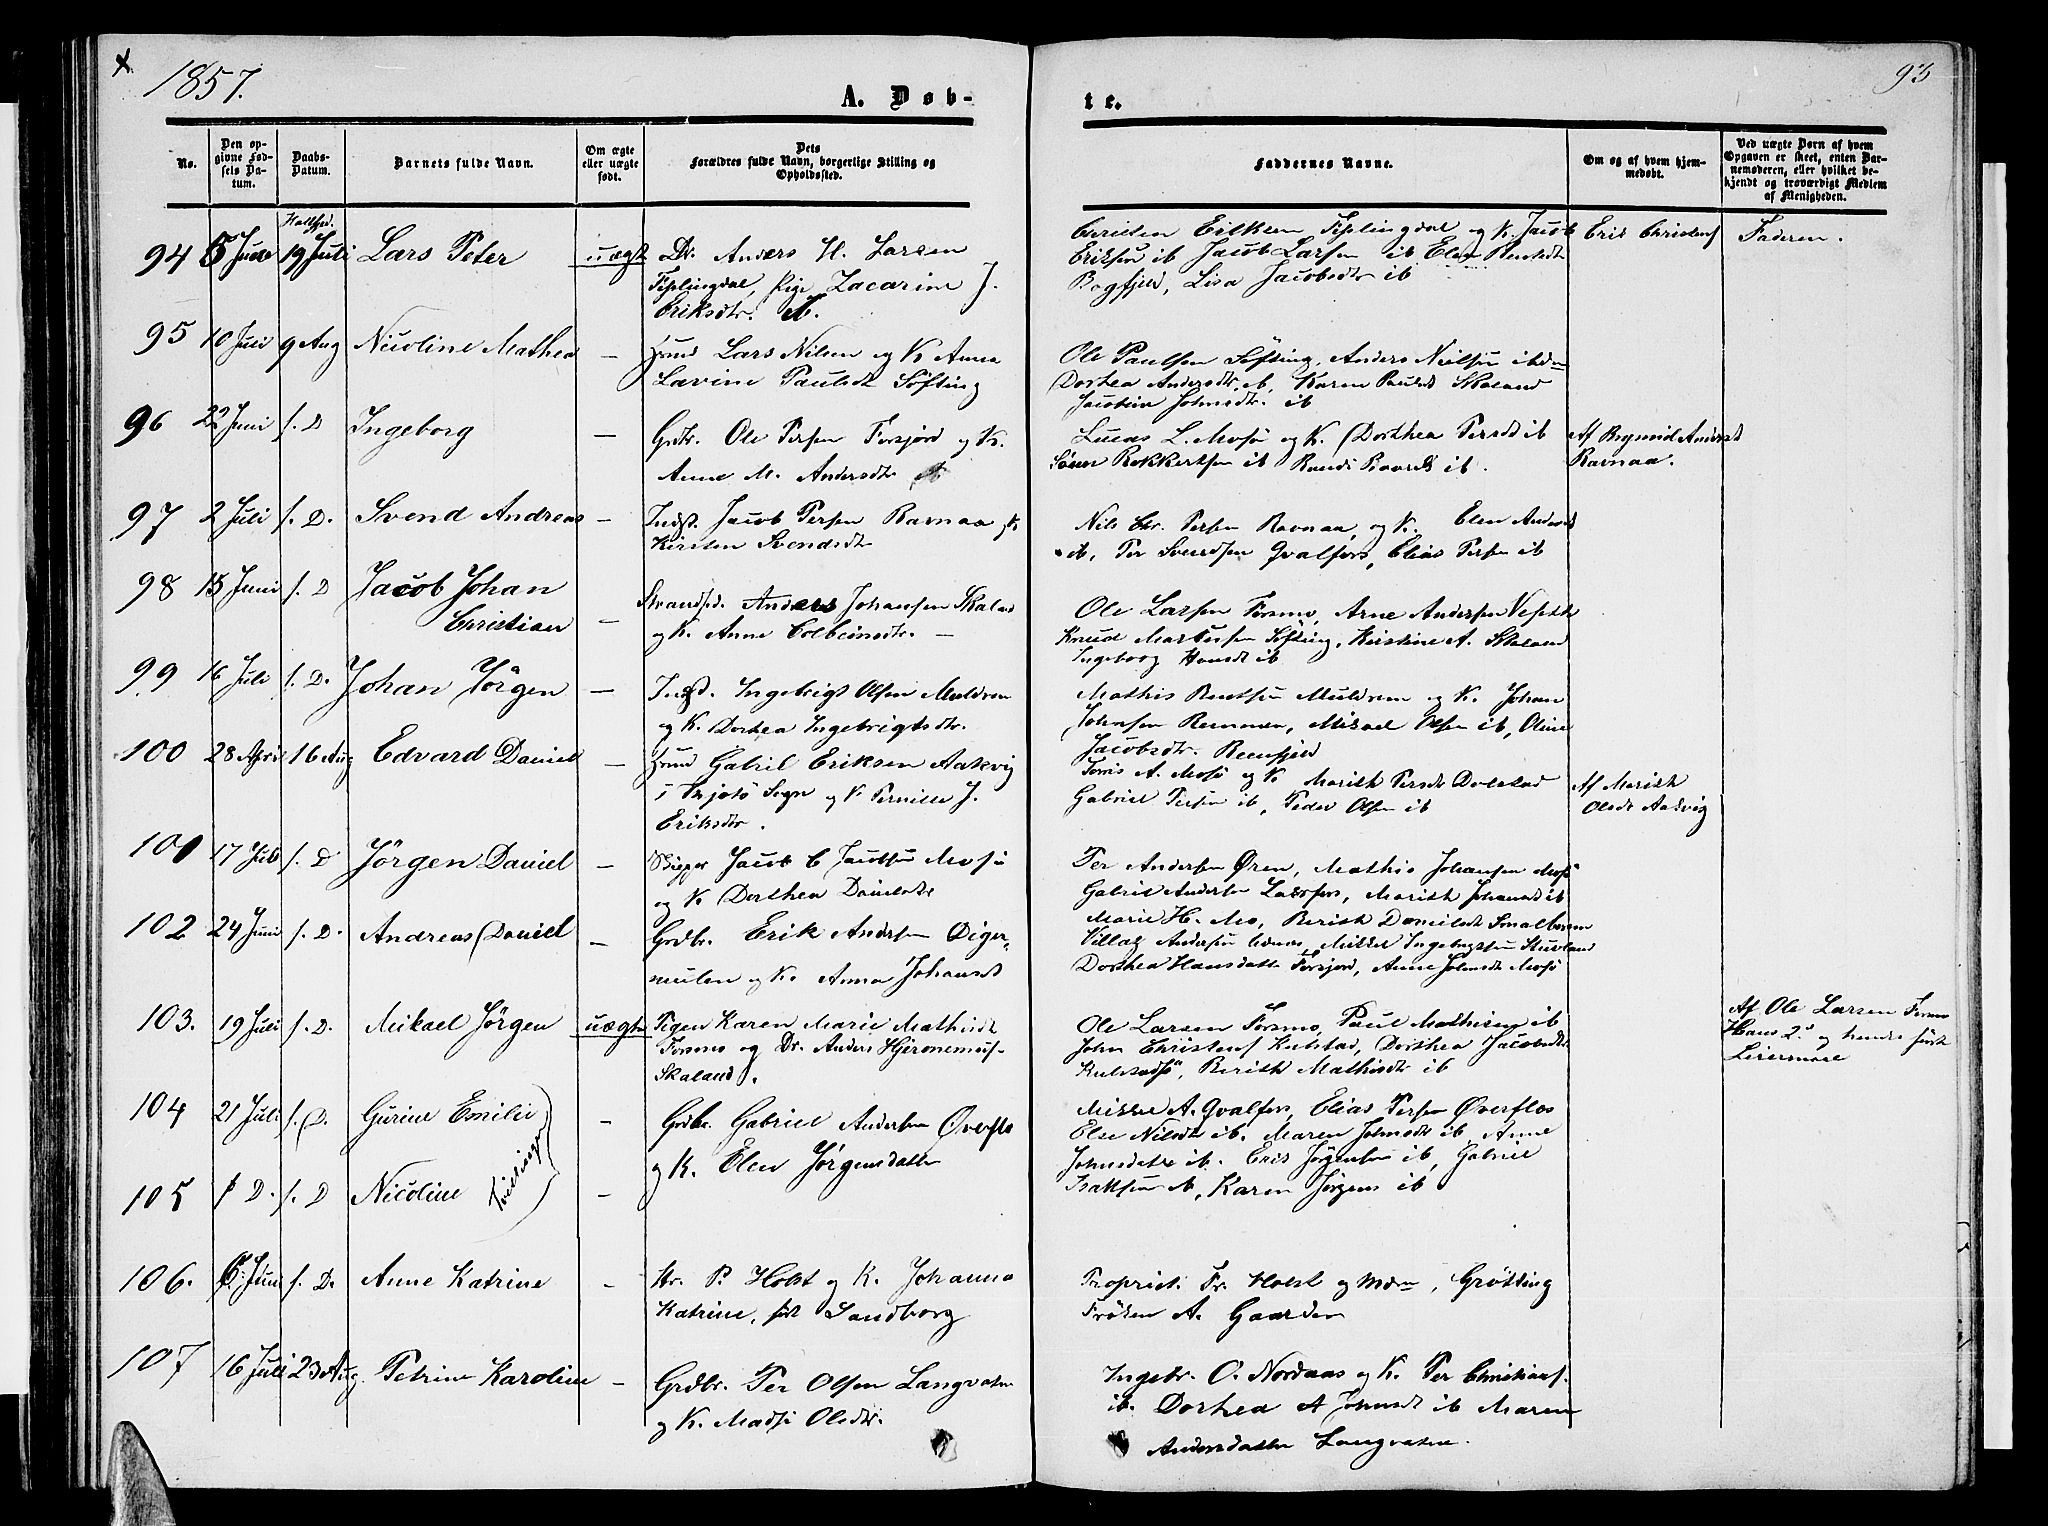 1857.
A. Døb-
te.
93
No.
Den op-
givne Fød-
sels Da-
tum.
Daabs-
Datum.
Barnets fulde Navn.
Om ægte
eller uægte
født.
Dets
Forældres fulde Navn, borgerlige Stilling og
Opholdssted.
Faddernes Navne.
Om og af hvem hjem-
medøbt.
Ved uægte Børn af hvem
Opgaven er skeet, enten Bar-
nemoderen, eller hvilket be-
kjendt og troværdigt Medlem
af Menigheden.
94 5 June 19 Juli Lars Peter uægte Dr. Anders H. Larsen
Fiplingdal, Pige Zacarine J.
Eriksdtr. ib.
Eriksen Fiplingdal og K. Jacob
Eriksen ib Jacob Larsen ib Elen
Bogfjeld, Lisa Jacobsdtr ib
Eric Christens
Faderen.
95 10 Juli 9 Aug Nicoline Mathea — Hmd Lars Nilsen og K Anna
Lavine Paulsdt Søfting
Ole Paulsen Søfting, Anders Nielsen
Dorthea Andersdtr. ib, Karen Paulsdt Skaland
Jacobine Johnsdtr. ib
96 22 Juni s. D Ingeborg — Grdbr. Ole Persen Forsjord og K.
Anne M. Andersdtr ib
Lucas L. Mosø og K. Dorthea Persdt ib
Søren Rokkertsen ib Randi ib.
Af Andersdt
Ravnaa.
97 2 Juli s. D. Svend Andreas — Indst. Jacob Persen Ravnaa og K
Kirsten Svendsdtr
Nils Chr. Persen Ravnaa, og K. Elen Andersdt
ib, Per Svendsen Qvalfors, Elias Persen ib
98 15 Juni s. D Jacob Johan
Christian — Strandsd. Anders Johansen Skaland
og K. Anne Colbeinsdtr. —
Ole Larsen Forsmo, Arne Andersen
Knud Martesen Søfting, Kirstine A. Skaland
Ingeborg Hansdt ib
99 16 Juli s. D. Johan Jørgen — Indst. Ingebrigt Olsen Muldrem
og K. Dorthea Ingebrigtsdtr.
Mathis Bentsen Muldrem og K. Johan
Johnsen Remmen, Mikael Olsen ib, Oline
Jacobsdtr. Reenfjeld
100 28 April 16 Aug Edvard Daniel — Hmd Gabriel Eriksen Aakvig
i Sogn og K Pernille J.
Eriksdtr.
A. Mosø og K Marith Persdt Dolstad
Gabriel Persen ib, Peder Olsen ib
Af Marith
Olsdt Aakvig
101 17 Juli s. D Jørgen Daniel — Skipper Jacob C Jacobsen Mosø
og K Dorthea Danielsdtr
Per Andersen Øren, Mathis Johansen Mosø
Gabriel Andersen Laxfors, Marith Johansdt ib
102 24 Juni s. D. Andreas Daniel — Grdbr. Erik Andersen Diger-
mulen og K. Anna Johansdt
Marie H. Mo, Berith Danielsdt
Andersen Mikkel Ingebrigtsen Stuvland
Dorthea Hansdatter Forsjord, Anne Johnsdt Mosø
103. 19 Juli s. D. Mikael Jørgen uægte Pigen Karen Marie Mathisdt
Forsmo og Dr. Anders Hjeronemus-
Skaland.
Ole Larsen Forsmo, Paul Mathisen ib
John Christens Kulstad, Dorthea Jacobsdtr
Kulstadsø, Berith Mathisdtr ib
Af Ole Larsen Forsmo
Hans 2. og hendes første
Leiermaal
104 21 Juli s. D. Gurine Emilie — Grdbr. Gabriel Andersen Øverflo
og K. Elen Jørgensdatter
Mikkel A. Qvalfors, Elias Persen Øverflos
Else Nilsdt ib. Maren Johnsdt ib Anne
Johnsdatter ib. Eric Jørgensen ib, Gabriel
Isaksen ib, Karen Jørgens ib
105 s D. s. D Nicoline —
Tvillinger
106. 6 Juni s. D. Anne Katrine — Hr. P. Holst og K. Johanna
Katrine, født Sandborg
Propriet. Fr. Holst og Mdm, Grøtting
Frøken A. Gaarden
107 16 Juli 23 Aug. Petrine Karoline — Grdbr. Per Olsen Langvatn
og K. Madsi Olsdtr.
Ingebr. O. Nordaas og K. Per Christians.
ib. Dorthea A Johnsdt ib Maren
Andersdatter Langvatne.